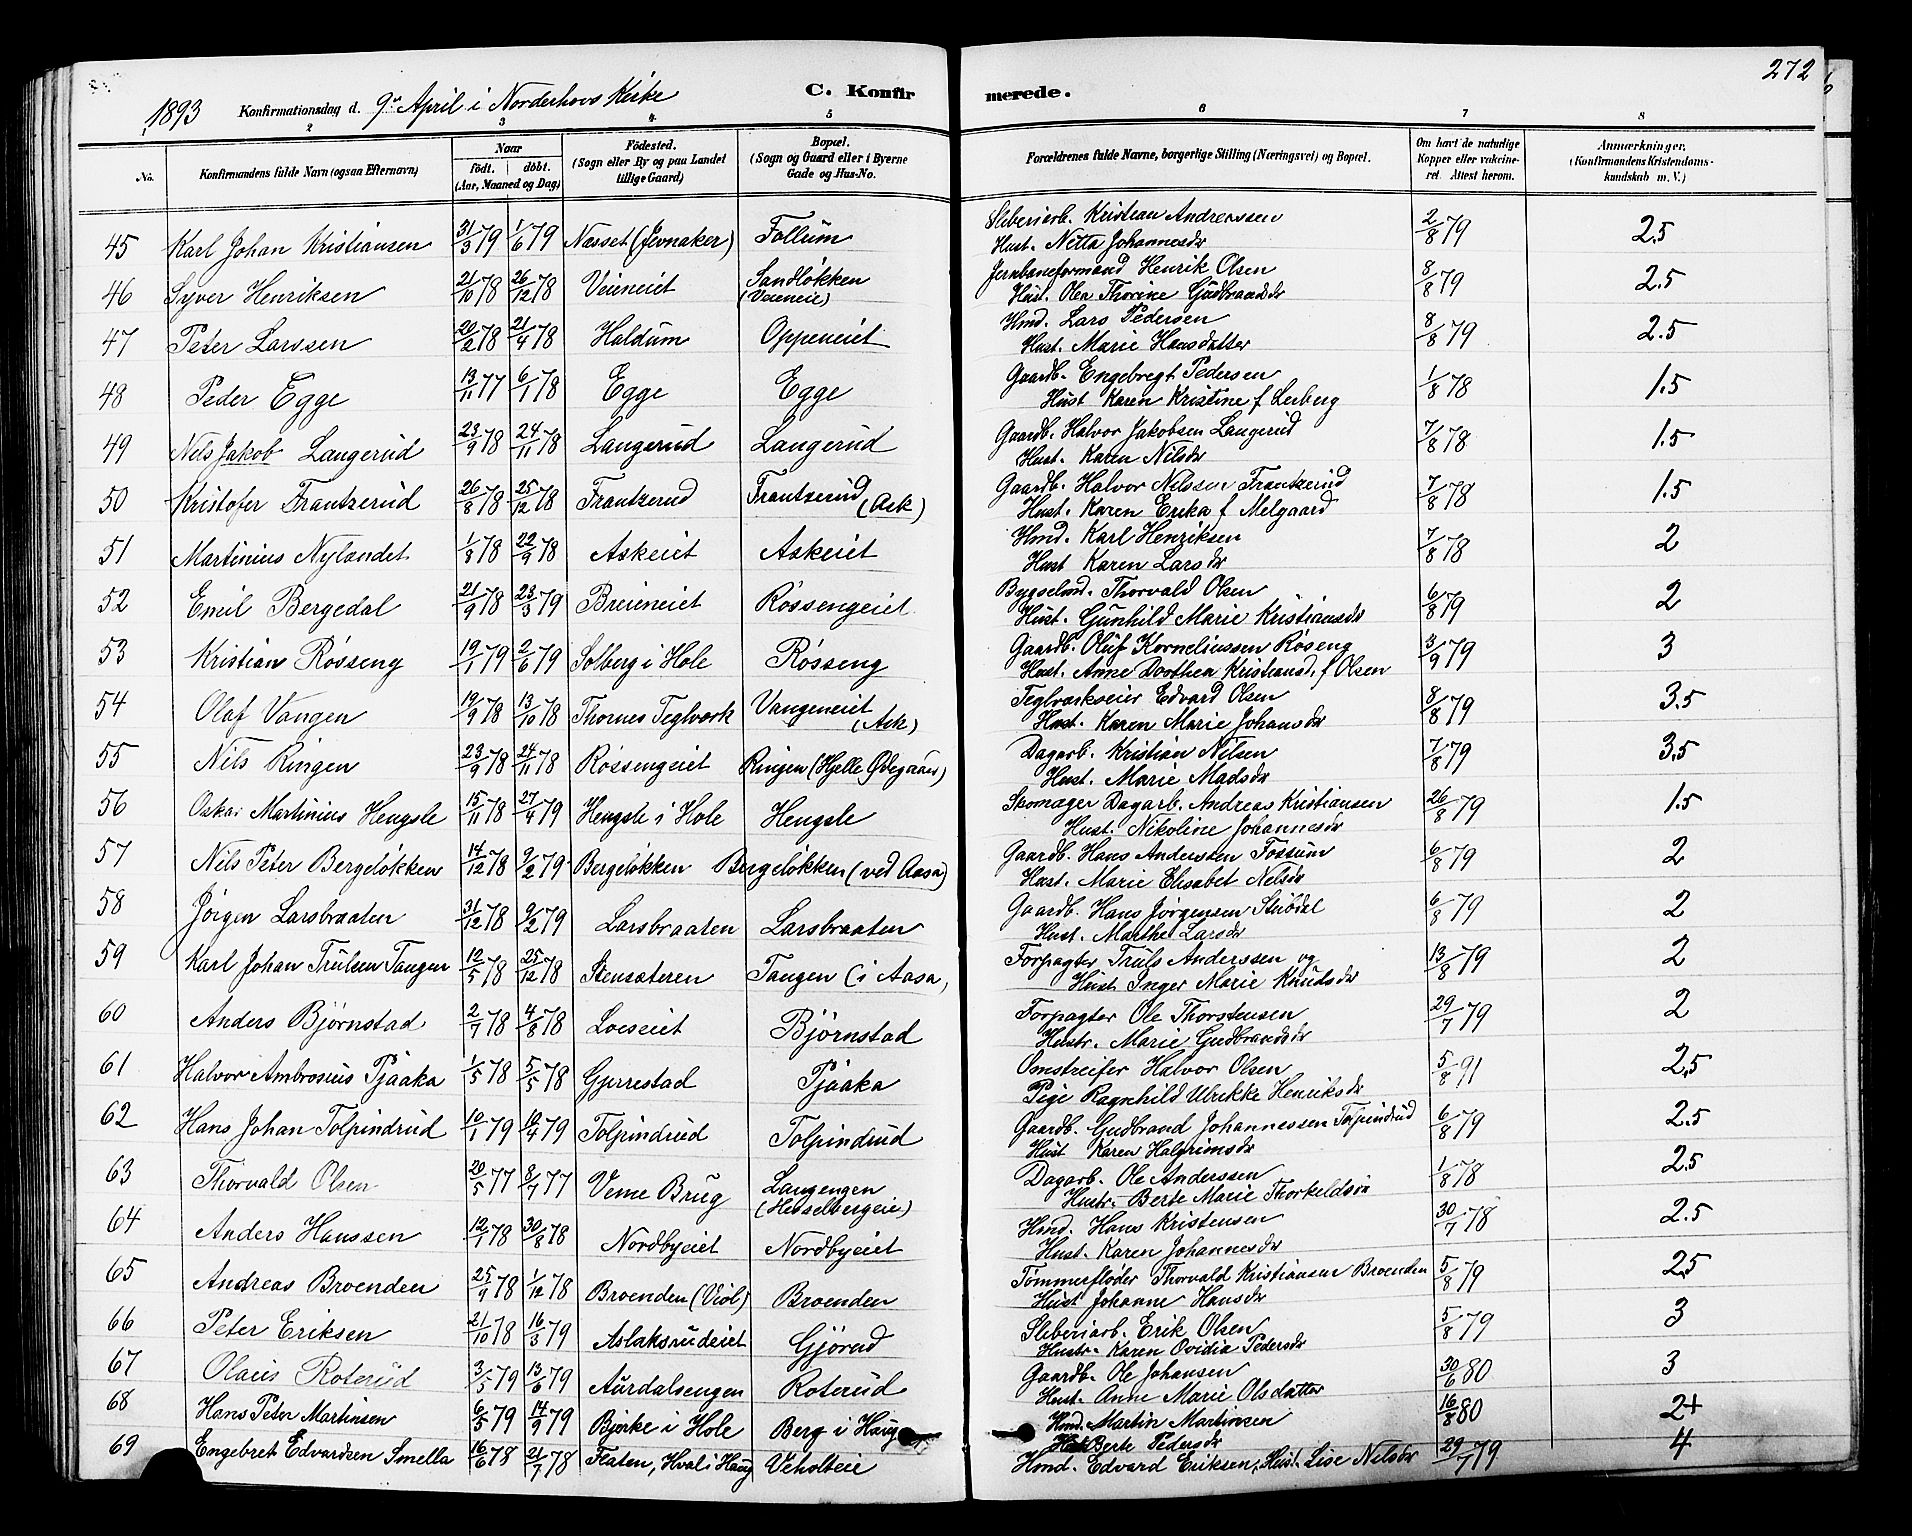 272
1893 Konfirmationsdag d. 9de April i Norderhovs Kirke C. Konfirmerede.
2 3 4 5 6 7 8
No. Konfirmandens fulde Navn (ogsaa Efternavn) Naar født. døbt. (Aar, Maaned og Dag) Fødested. (Sogn eller By og paa Landet tillige Gaard) Bopæl. (Sogn og Gaard eller i Byerne Gade og Hus-No. Forældrenes fulde Navne, borgerlige Stilling (Næringsvei) og Bopæl. Om havt de naturlige Kopper eller vakcineret. Attest herom. Anmærkninger. (Konfirmandens Kristendomskundskab m. V.)
45 Karl Johan Kristiansen 31/3 79 1/6 79 Næsset (Jevnaker) Follum Sliberiarb. Kristian Andreassen 2/8 79 2.5
Hust. Netta Johannesdr
46 Syver Henriksen 21/10 78 26/12 78 Veieneiet Sandløkken (Veieneie) Jernbaneformand Henrik Olsen 8/8 79 2.5
Hust. Olea Thorine Gudbrandsdr
47 Peter Larssen 20/2 78 21/4 78 Haldum Oppeneiet Hmd. Lars Pedersen 8/8 79 2.5
Hust. Marie Hansdatter
48 Peder Egge 13/11 77 6/1 78 Egge Egge Gaardb. Engebregt Pedersen 1/8 78 1.5
Hust Karen Kristine f Lerberg
49 Nels Jakob Langerud 23/9 78 24/11 78 Langerud Langerud Gaardb. Halvor Jakobsen Langerud 7/8 78 1.5
Hust. Karen Nilsdr
50 Kristofer Frantzerud 26/8 78 25/12 78 Frantzerud Frantzerud (Ask) Gaardb. Halvor Nelssen Frantzerud 7/8 78 1.5
Hust. Karen Erika f Melgaard
51 Martinius Nylandet 1/8 78 22/9 78 Askeiet Askeiet Hmd. Karl Henriksen 7/8 78 2
Hust Karen Larsdr
52 Emil Bergedal 21/9 78 23/3 79 Breieneiet Røssengeiet Bygselmd. Thorvald Olsen 6/8 79 2
Hust. Gunhild Marie Kristiansdr
53 Kristian Røsseng 19/1 79 2/6 79 Solberg i Hole Røsseng Gaardb. Oluf Korneliussen Røseng 3/9 79 3
Hust. Anne Dorthea Kristiansd. f Olsen
54 Olaf Vangen 19/9 78 13/10 78 Thornes Teglværk Vangeneiet (Ask) Teglværkseier Edvard Olsen 8/8 79 3.5
Hust. Karen Marie Johansdr
55 Nils Ringen 23/9 78 24/11 78 Røssengeiet Ringen (Hjelle Ødegaard) Dagarb. Kristian Nilsen 7/8 79 3.5
Hust. Marie Madsdr
56 Oskar Martinius Hengsle 15/11 78 27/4 79 Hengsle i Hole Hengsle Skomager Dagarb. Andreas Kristiansen 26/8 79 1.5
Hust. Nikoline Johannesdr
57 Nils Peter Bergeløkken 14/12 78 9/2 79 Bergeløkken Bergeløkken (ved Aasa) Gaardb. Hans Andersen Fossum 6/8 79 2
Hust. Marie Elisabet Nelsdr
58 Jørgen Larsbraaten 31/12 78 9/2 79 Larsbraaten Larsbraaten Gaardb. Hans Jørgensen Stubdal 6/8 79 2
Hust. Marthe Larsdr
59 Karl Johan Trulsen Tangen 12/5 78 25/12 78 Stensæteren Tangen (i Aasa) Forpagter Truls Anderssen og 13/8 79 2
Hust Inger Marie Knudsdr
60 Anders Bjørnstad 2/7 78 4/8 78 Loeseiet Bjørnstad Forpagter Ole Thorstensen 29/7 79 2
Hustr. Marie Gudbrandsdr
61 Halvor Ambrosius Pjaaka 1/5 78 5/5 78 Gjerrestad Pjaaka Omstreifer Halvor Olsen 5/8 91 2.5
Pige Ragnhild Ulrikke Henriksdr
62 Hans Johan Tolpindrud 10/1 79 10/4 79 Tolpindrud Tolpindrud Gaardb. Gudbrand Johannessen Tolpindrud 6/8 79 2.5
Hust Karen Halgrimsdr
63 Thorvald Olsen 20/5 77 8/7 77 Veme Brug Langengen (Hesselbergeie) Dagarb. Ole Anderssen 1/8 78 2.5
Hustr. Berte Marie Thorkeldsdr
64 Anders Hanssen 12/1 78 30/8 78 Nordbyeiet Nordbyeiet Hmd. Hans Kristensen 30/7 78 2.5
Hust. Karen Johannesdr
65 Andreas Broenden 25/9 78 1/12 78 Broenden (Viol) Broenden Tømmerfløder Thorvald Kristiansen Broenden 5/8 79 2.5
Hust Johanne Hansdr
66 Peter Eriksen 21/10 78 16/3 79 Aslaksrudeiet Gjørud Sliberiarb. Erik Olsen 5/8 79 3
Hustr. Karen Ovidia Pedersdr
67 Olaus Roterud 3/5 79 13/6 79 Aurdalsengen Roterud Gaardb. Ole Johansen 30/6 80 3
Hust. Anne Marie Olsdatter
68 Hans Peter Martinsen 6/5 79 14/9 79 Bjørke i Hole Berg i Haug Hmd. Martin Martinsen 16/8 80 2+
Hust Berte Pedersdr
69 Engebret Edvardsen Smella 16/6 78 21/7 78 Flaten, Hval i Haug Veholteie Hmd. Edvard Eriksen, Hust. Lise Nilsdr 29/7 79 4